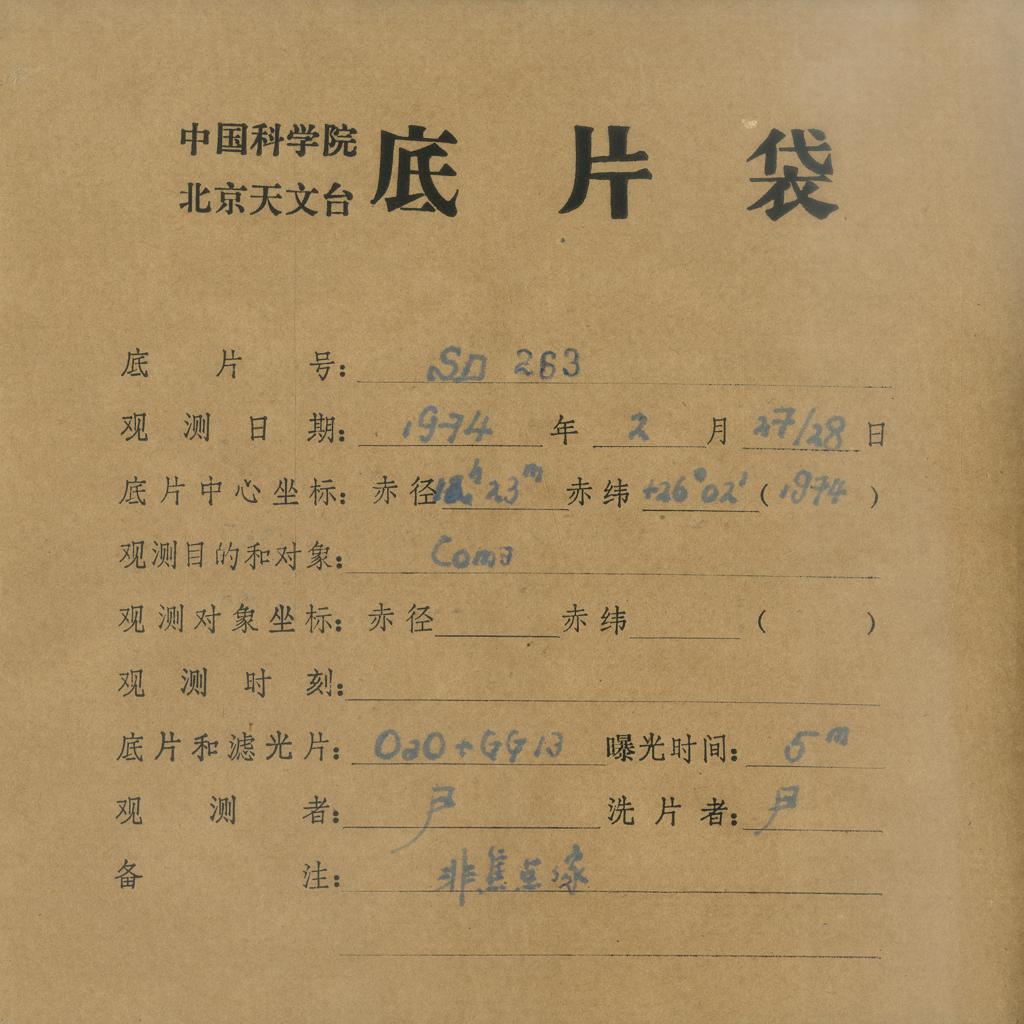 中国科学院
北京天文台 底片袋
底片号： SD 263
观测日期： 1974 年 2 月 27/28 日
底片中心坐标： 赤径 12h 23m 赤纬 +26°02′ ( 1974 )
观测目的和对象： Coma
观测对象坐标： 赤径 赤纬 ( )
观测时刻：
底片和滤光片： OaO+GG13 曝光时间： 5m
观测者： 尹 洗片者： 尹
备注： 非焦点像